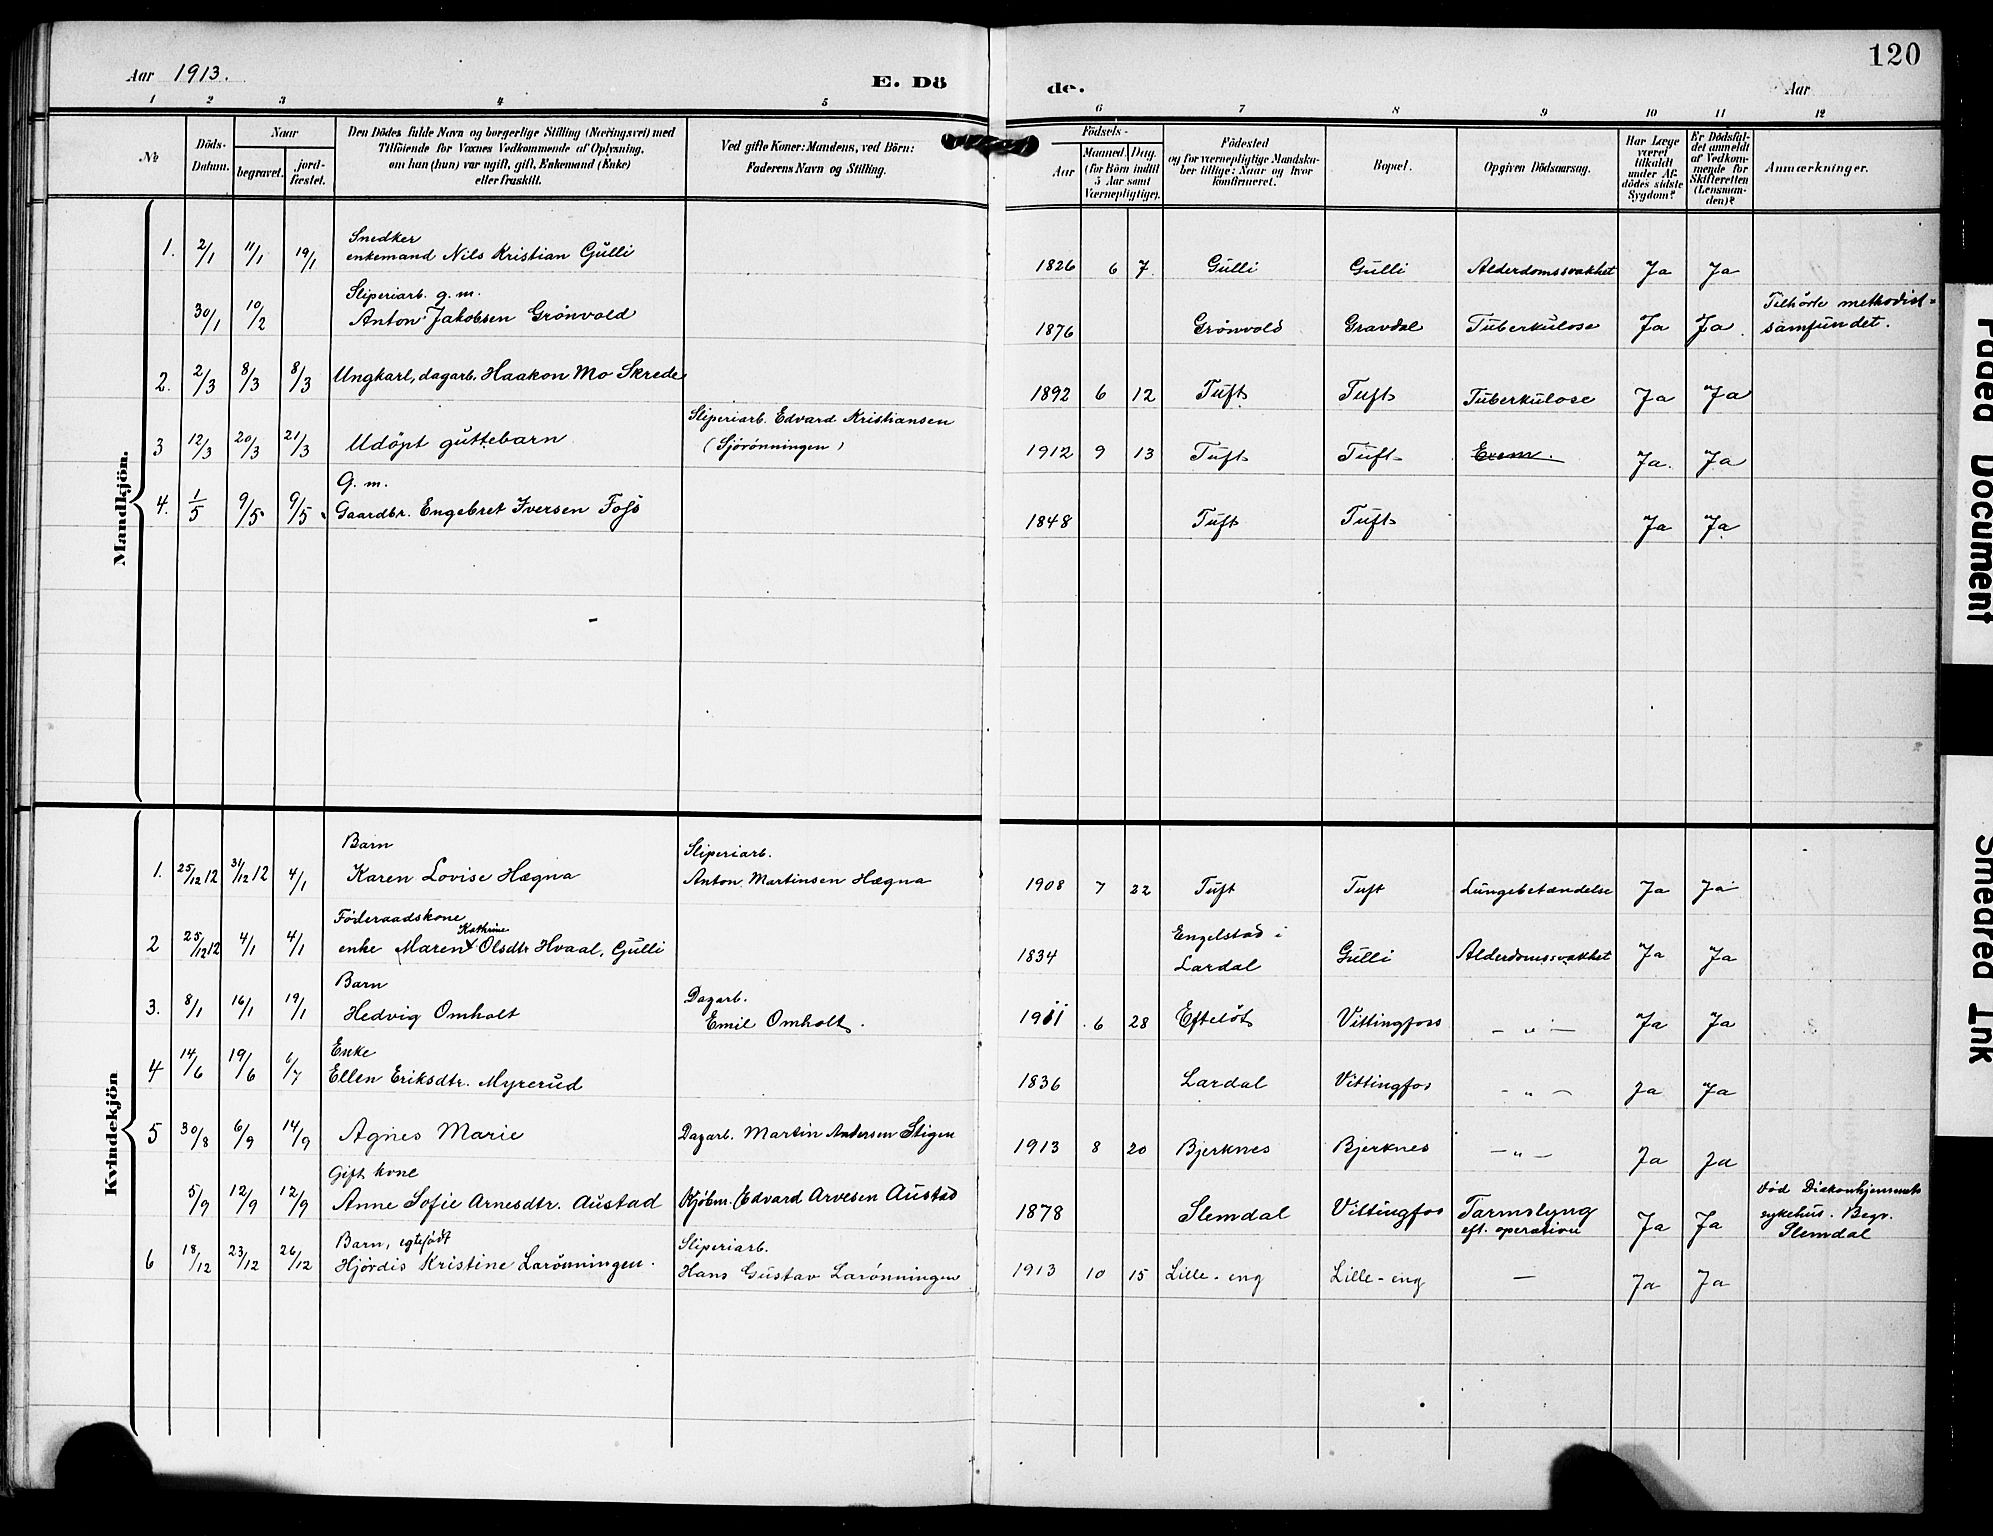 120
Aar 1913.
E. Dö
de.
Aar
1 2 3 4 5 6 7 8 9 10 11 12
No
Döds-Datum.
Naar
begravet.
jord-fæstet.
Den Dödes fulde Navn og borgerlige Stilling (Næringsvei) med
Tilföiende for Voxnes Vedkommende af Oplysning,
om han (hun) var ugift, gift, Enkemand (Enke)
eller fraskilt.
Ved gifte Koner: Mandens, ved Börn:
Faderens Navn og Stilling.
Födsels-
Aar
Maaned. Dag.
(for Börn indtil
5 Aar samt
Værnepligtige).
Födested
og for værnepligtige Mandska-
ber tillige: Naar og hvor
konfirmeret.
Bopæl.
Opgiven Dödsaarsag.
Har Læge
været
tilkaldt
under Af-
dödes sidste
Sygdom?
Er Dödsfal-
det anmeldt
af Vedkom-
mende for
Skifteretten
(Lensman-
den)?
Anmærkninger.
Mandkjön.
Snedker
1. 2/1 11/1 19/1 enkemand Nils Kristian Gulli 1826 6 7 Gulli Gulli Alderdomssvakhet Ja Ja
Sliperiarb. g.m.
30/1 10/2 Anton Jakobsen Grönvold 1876 Grönvold Gravdal Tuberkulose Ja Ja Tilhörte methodist-
samfundet.
2. 2/3 8/3 8/3 Ungkarl, dagarb. Haakon Mo Skrede 1892 6 12 Tuft Tuft Tuberkulose Ja Ja
Sliperiarb. Edvard Kristiansen
3 12/3 20/3 21/3 Udöpt guttebarn (Sjörönningen) 1912 9 13 Tuft Tuft Ja. Ja
G. m.
4. 1/5 9/5 9/5 Gaardbr. Engebret Iversen Foss 1848 Tuft Tuft Ja Ja
Kvindekjön
Barn Sliperiarb.
1. 25/12 12 31/12 12 4/1 Karen Lovise Hægna Anton Martinsen Hægna 1908 7 22 Tuft Tuft Lungebetændelse Ja Ja
Föderaadskone
Kathrine
2 25/12 12 4/1 4/1 enke Maren Olsdtr Hvaal, Gulli 1834 Engelstad i
Lardal Gulli Alderdomssvakhet Ja Ja
Barn Dagarb.
3. 8/1 16/1 19/1 Hedvig Omholt Emil Omholt. 1911 6 28 Efteløt Vittingfoss - " - Ja Ja
Enke
4 14/6 19/6 6/7 Ellen Eriksdtr. Myrerud 1836 Lardal Vittingfos - " - Ja Ja
5 30/8 6/9 14/9 Agnes Marie Dagarb. Martin Andersen Stigen 1913 8 20 Bjerknes Bjerknes - " - Ja Ja
Gift kone
5/9 12/9 12/9 Anne Sofie Arnesdtr. Austad Kjöbm. Edvard Arvesen Austad 1878 Slemdal Vittingfos Tarmslyng
eft. operation Ja Ja död Diakonhjemmets
sykehus. Begr.
Slemdal
Barn, egtefödt Sliperiarb.
6 18/12 23/12 26/12 Hjördis Kristine Larönningen. Hans Gustav Larönningen 1913 10 15 Lille-eng Lille-eng - Ja Ja
Faded Document
Smeared Ink